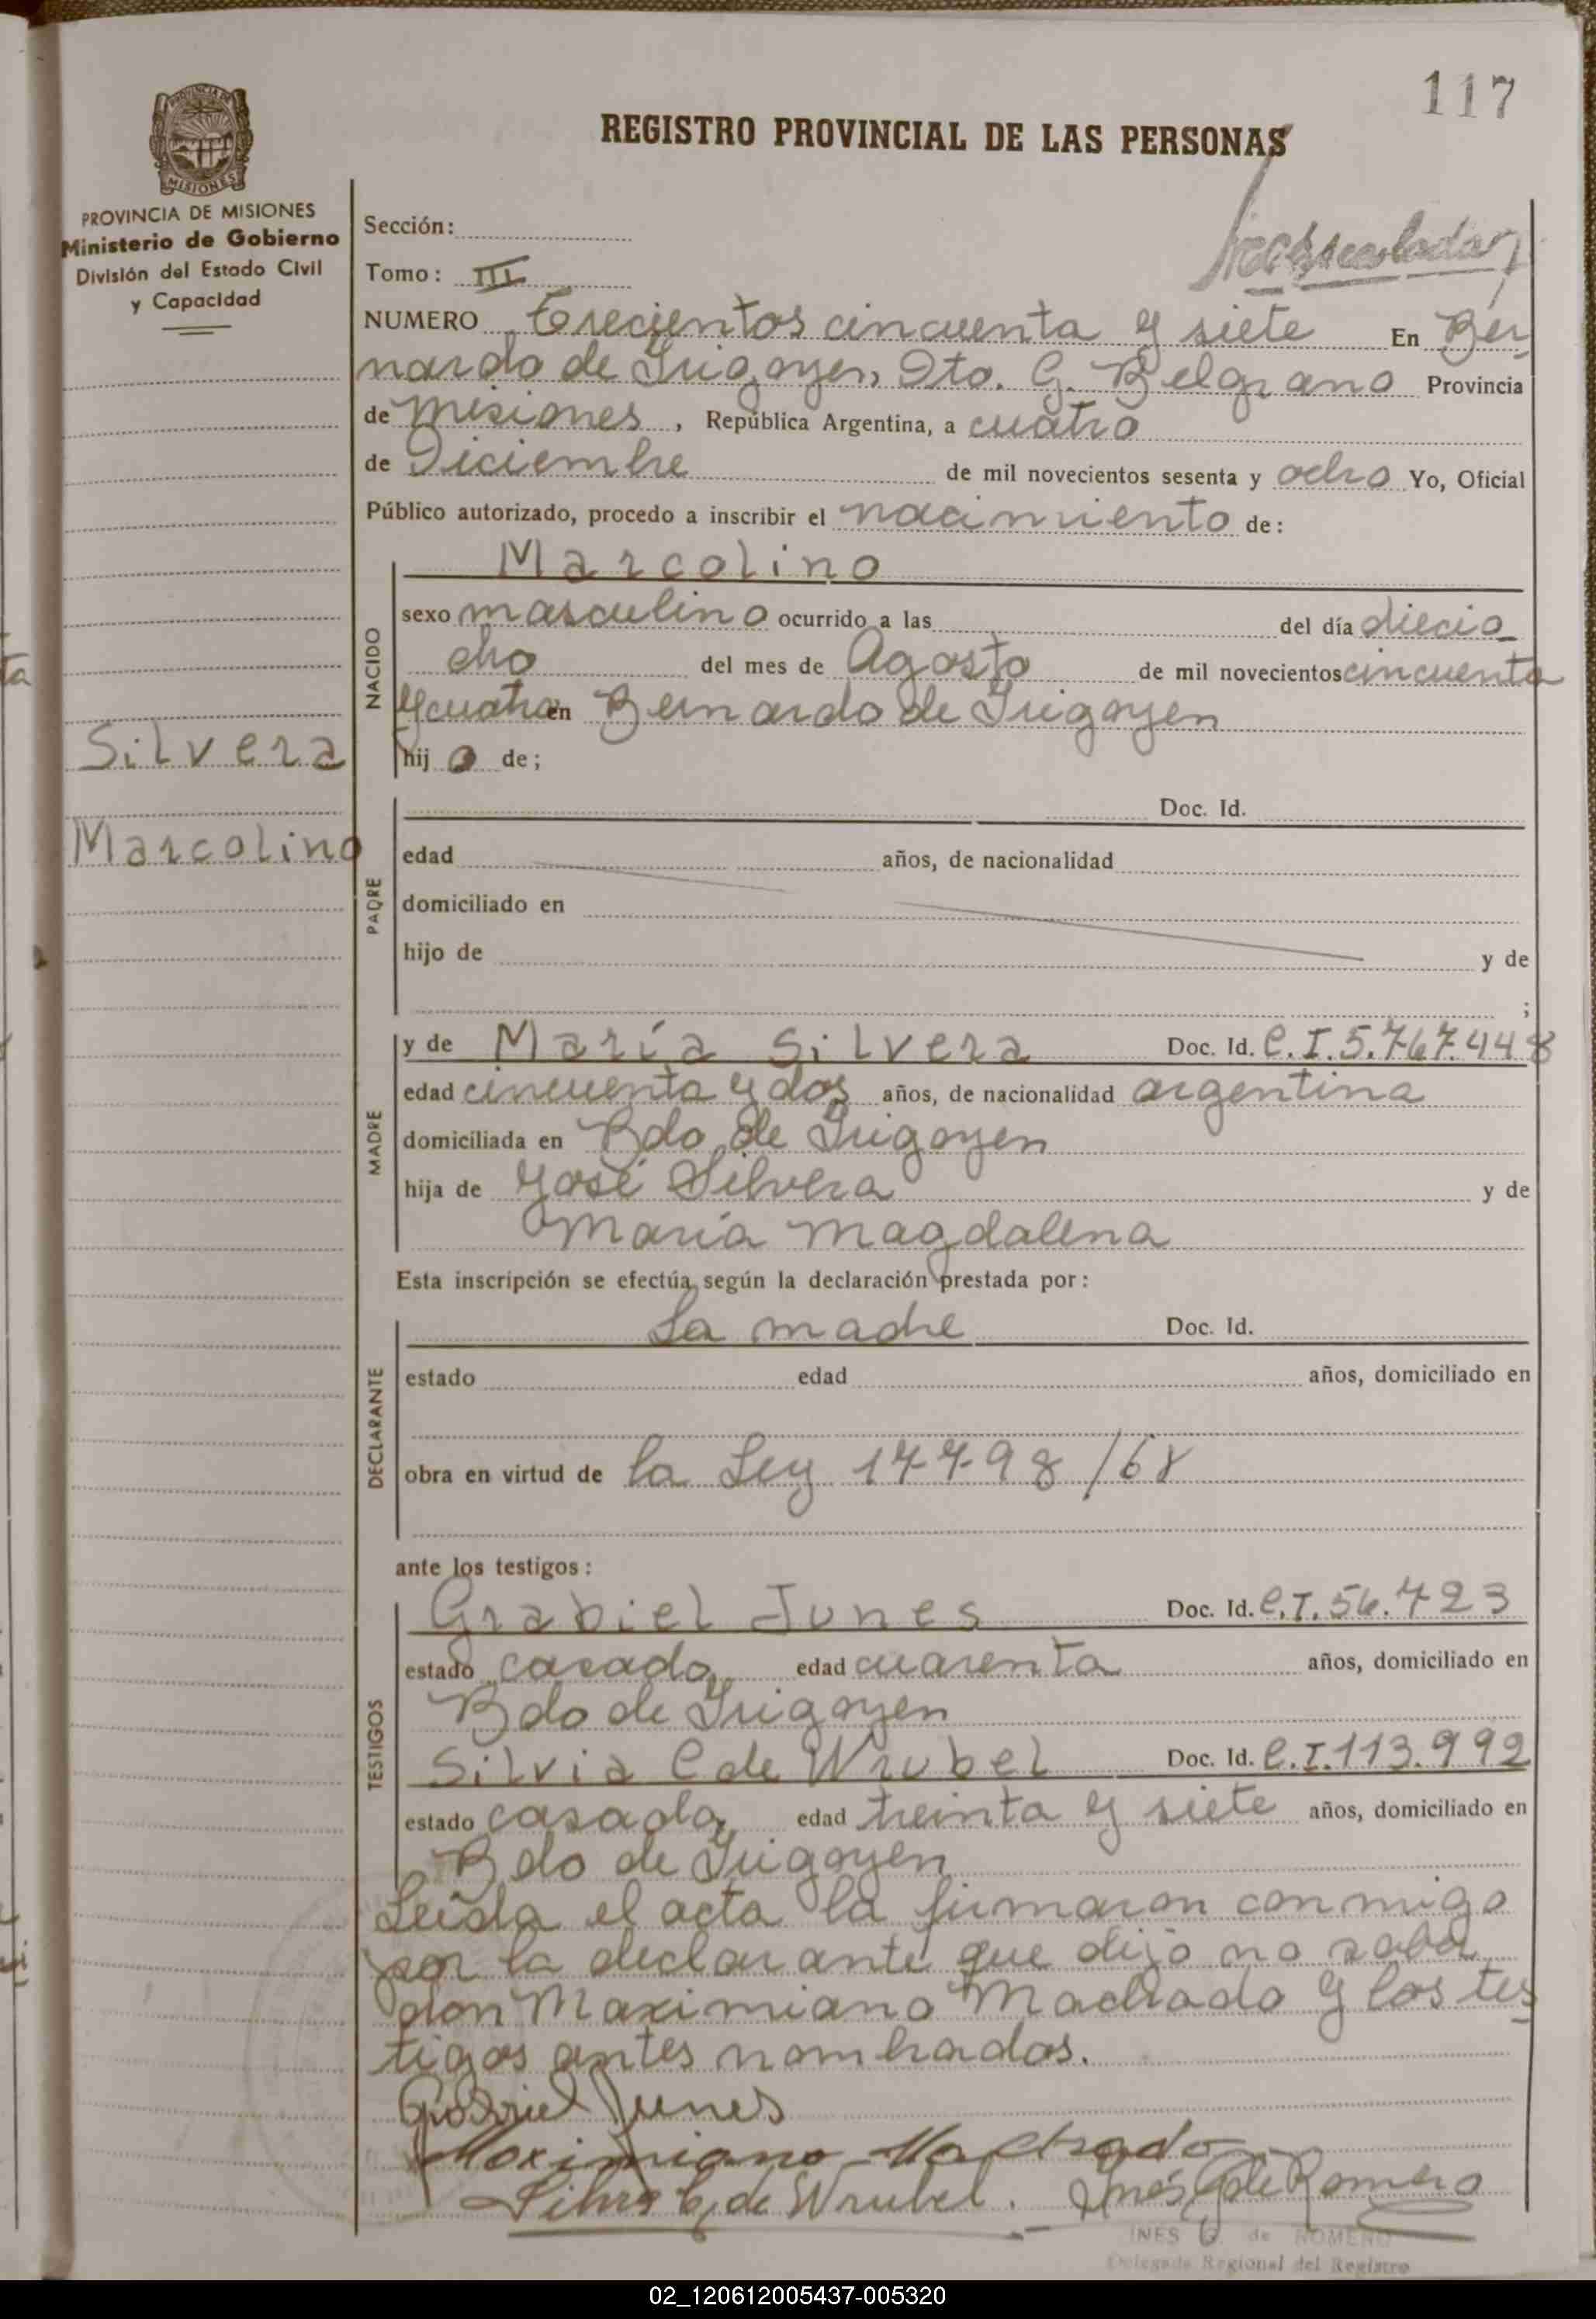 117
REGISTRO PROVINCIAL DE LAS PERSONAS
PROVINCIA DE MISIONES
MISIONES
PROVINCIA DE MISIONES
Ministerio de Gobierno
División del Estado Civil
y Capacidad
Silvera
Marcolino
Sección:
Tomo: III
NUMERO Trecientos cincuenta y siete En Ber
nardo de Irigoyen, Dto. G. Belgrano Provincia
de Misiones, República Argentina, a cuatro
de Diciembre de mil novecientos sesenta y ocho Yo, Oficial
Público autorizado, procedo a inscribir el nacimiento de:
NACIDO
Marcolino
sexo masculino ocurrido a las del día diecio
cho del mes de Agosto de mil novecientos cincuenta
y cuatro en Bernardo de Irigoyen
hij o de;
PADRE
Doc. Id.
edad años, de nacionalidad
domiciliado en
hijo de y de
;
MADRE
y de María Silvera Doc. Id. C.I.5.767.448
edad cincuenta y dos años, de nacionalidad argentina
domiciliada en Bdo de Irigoyen
hija de José Silvera y de
María Magdalena
Esta inscripción se efectúa según la declaración prestada por:
DECLARANTE
La madre Doc. Id.
estado edad años, domiciliado en
obra en virtud de la Ley 17798/68
ante los testigos:
TESTIGOS
Grabiel Junes Doc. Id. C.I.56.723
estado casado, edad cuarenta años, domiciliado en
Bdo de Irigoyen
Silvia C de Wrubel Doc. Id. C.I.113.992
estado casada, edad treinta y siete años, domiciliado en
Bdo de Irigoyen
Leida el acta la firmaron conmigo
por la declarante que dijo no saber
don Maximiano Machado y los tes
tigos antes nombrados.
Gabriel Junes
Maximiano Machado
C. de Wrubel. Inés G de Romero
INES G. de ROMERO
Delegada Regional del Registro
02_120612005437-005320